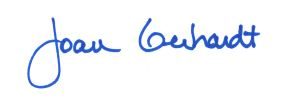 Joan Gerhardt